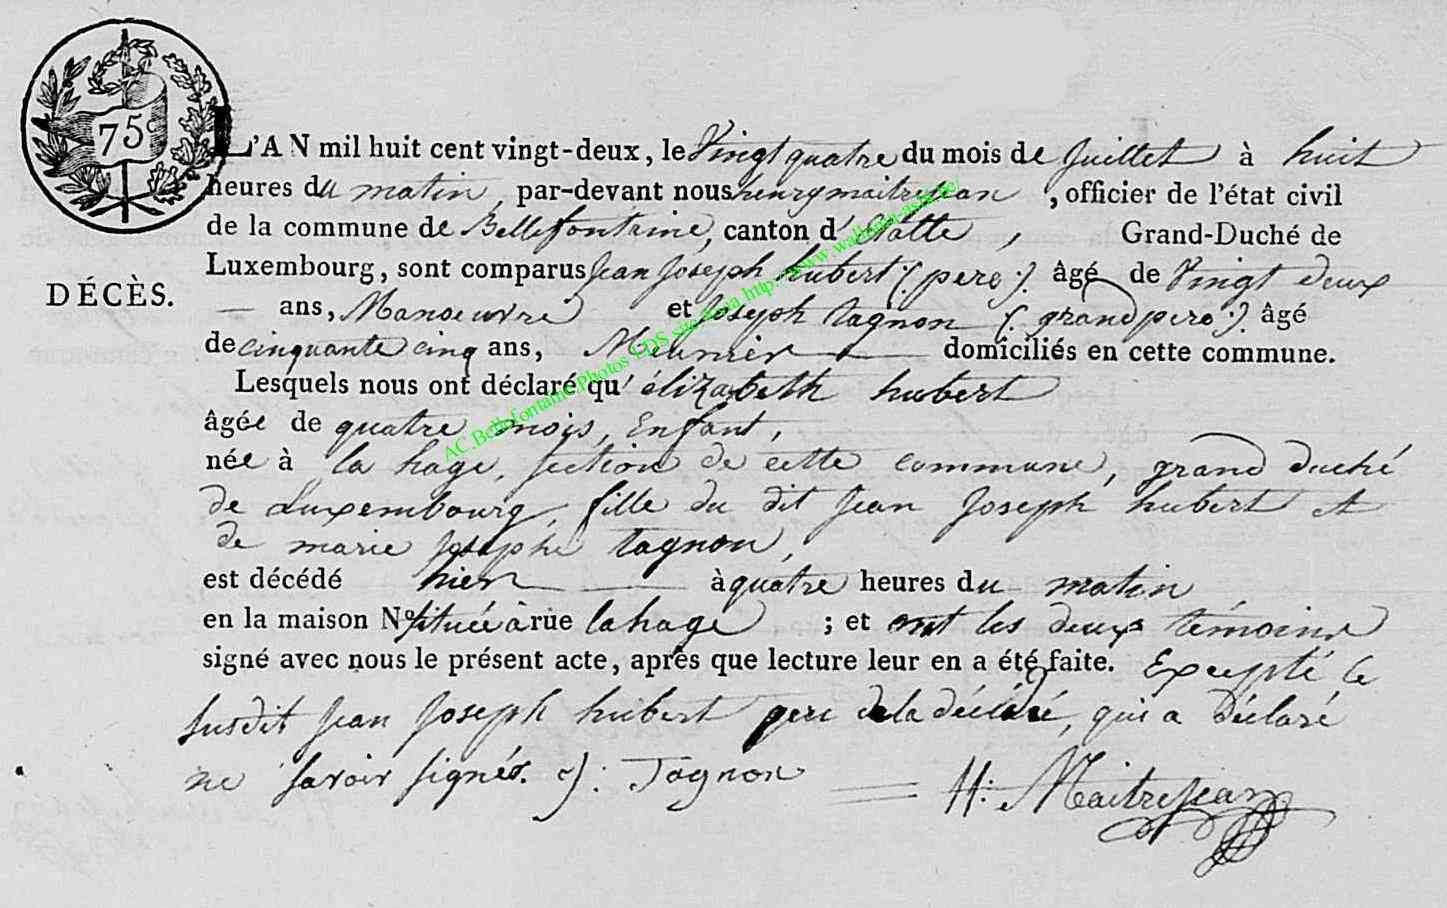 75c
L'AN mil huit cent vingt-deux, le Vingt quatre du mois de Juillet à huit
heures du matin, par-devant nous henry maitrejean, officier de l'état civil
de la commune de Bellefontaine, canton d'Etalle, Grand-Duché de
Luxembourg, sont comparus Jean Joseph hubert (: pere :) âgé de Vingt deux
DÉCÈS.
— ans, Manoeuvre et Joseph tagnon (: grand pere :) âgé
de cinquante cinq ans, Meunier — domiciliés en cette commune.
Lesquels nous ont déclaré qu'élizabeth hubert
âgée de quatre mois, Enfant,
née à la hage, section de cette commune, grand duché
de Luxembourg, fille du dit Jean Joseph hubert et
de marie Josephe tagnon,
est décédé hier — à quatre heures du matin
en la maison N° située à rue lahage ; et ont les deux témoins
signé avec nous le présent acte, après que lecture leur en a été faite. Excepté le
susdit Jean Joseph hubert pere de la décédé, qui a déclaré
ne savoir signér. J: Tagnon
H: Maitrejean
AC.Bellefontaine Photos LDS site Lara http://www.wallonia-asbl.be/